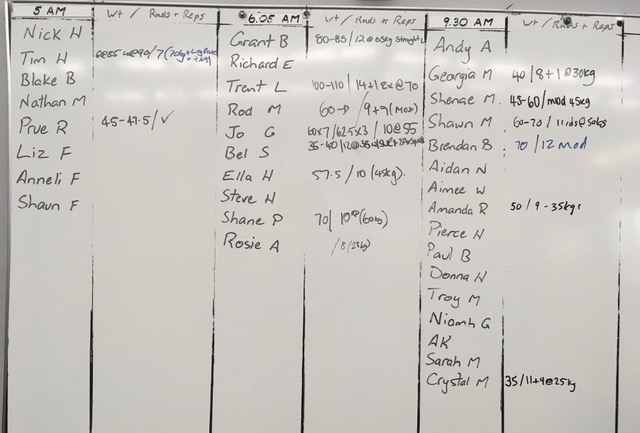 5 AM WT / Rnds + Reps
Nick H
Tim H
Blake B
Nathan M
Prue R 45-47.5/✓
Liz F
Anneli F
Shaun F
6.05 AM WT / Rnds + Reps
Grant B 80-85/12@65kg
Richard E
Trent L 100-110/14+1 @70
Rod M 60→ / 9+9 (Mod)
Jo G 60x7/62.5x3 / 10@55
Bel S 35-40/12@35
Ella H 57.5/10 (45kg).
Steve H
Shane P 70/10@(60kg)
Rosie A /8(25kg)
9.30 AM WT / Rnds + Reps
Andy A
Georgia M 40/8+1@30kg
Shenae M. 45-60/mod 45kg
Shawn M 60-70/11rds@50kg
Brendan B 70/12 mod
Aidan N
Aimee W
Amanda R 50/9-35kg
Pierce H
Paul B
Donna H
Troy M
Niamh G
AK
Sarah M
Crystal M 35/11+4@25kg